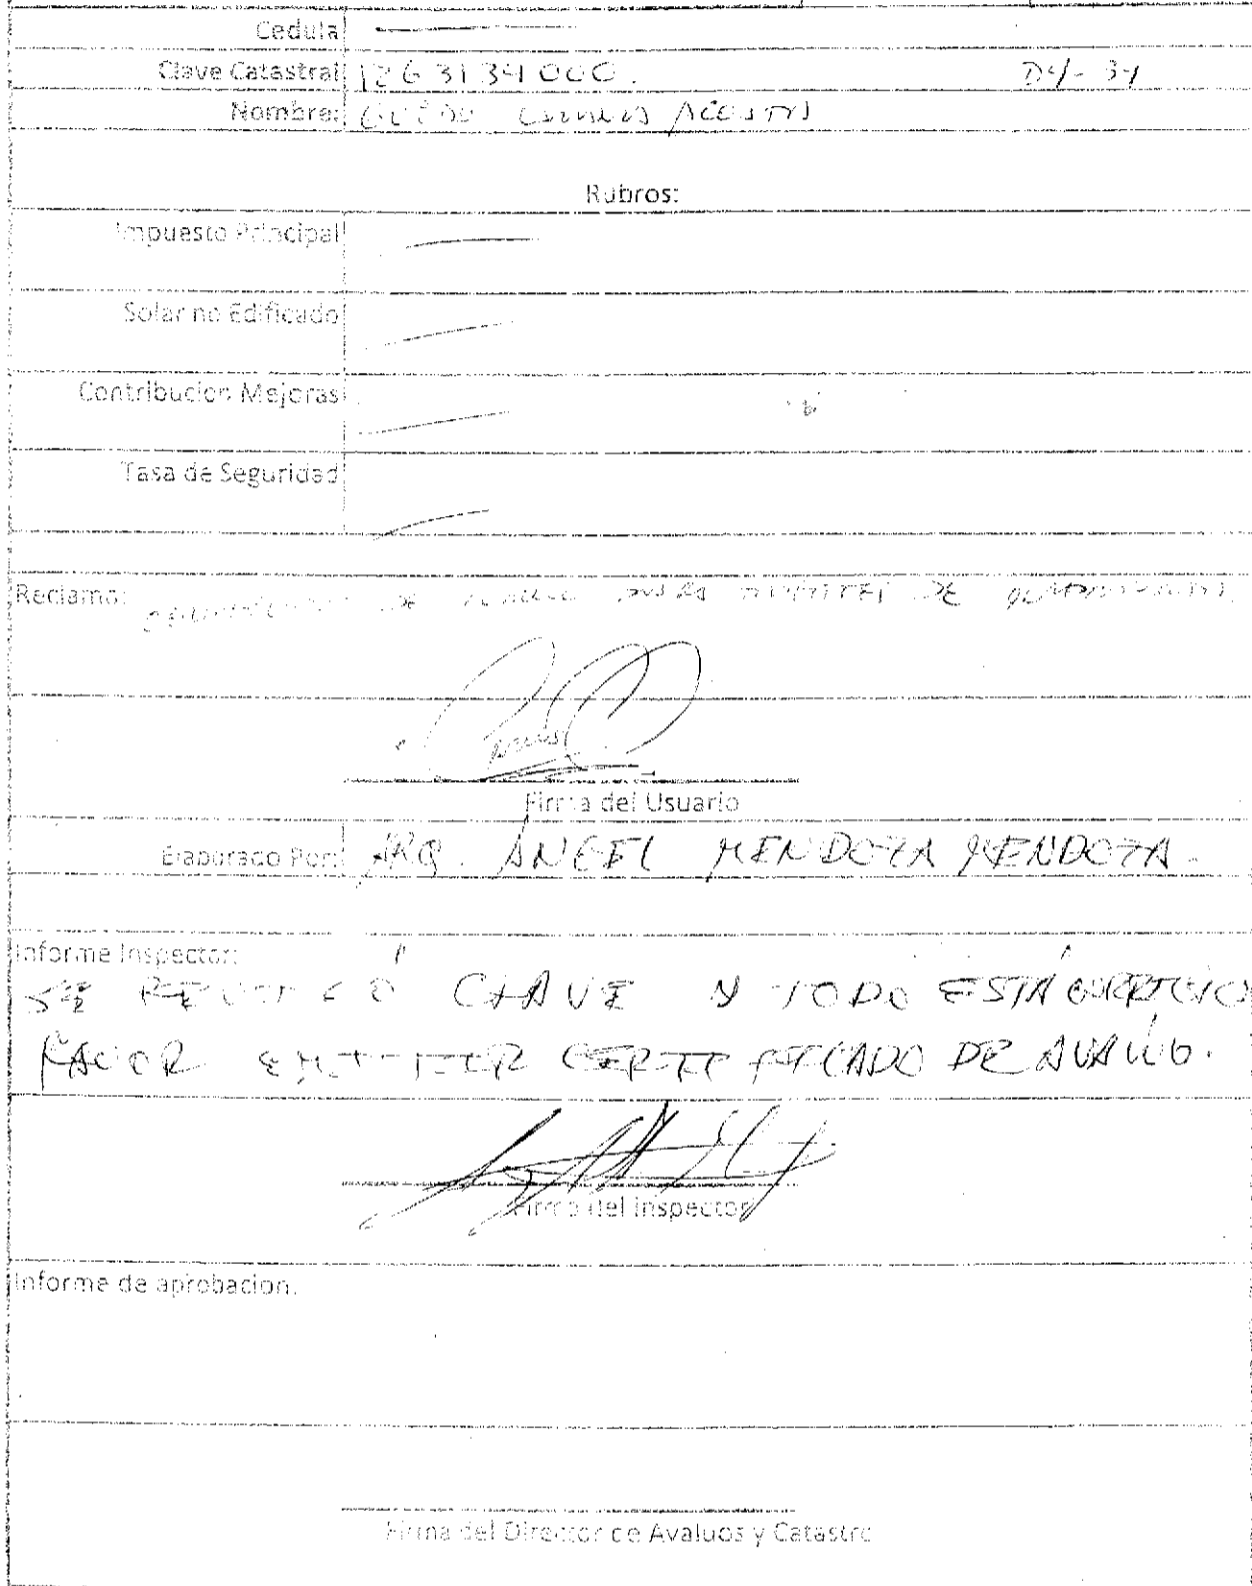 Cedula
Clave Catastral 1263134000. D4-34
Nombre: ACOSTA
Rubros:
Impuesto Principal
Solar no Edificado
Contribucion Mejoras
Tasa de Seguridad
Reclamo: DE DE
Firma del Usuario
Elaborado Por: ARQ. ÁNGEL MENDOZA MENDOZA.
Informe Inspector:
SE REVISÓ CLAVE Y TODO ESTÁ CORRECTO
FAVOR EMITIR CERTIFICADO DE AVALÚO.
Firma del Inspector
Informe de aprobacion.
Firma del Director de Avaluos y Catastro